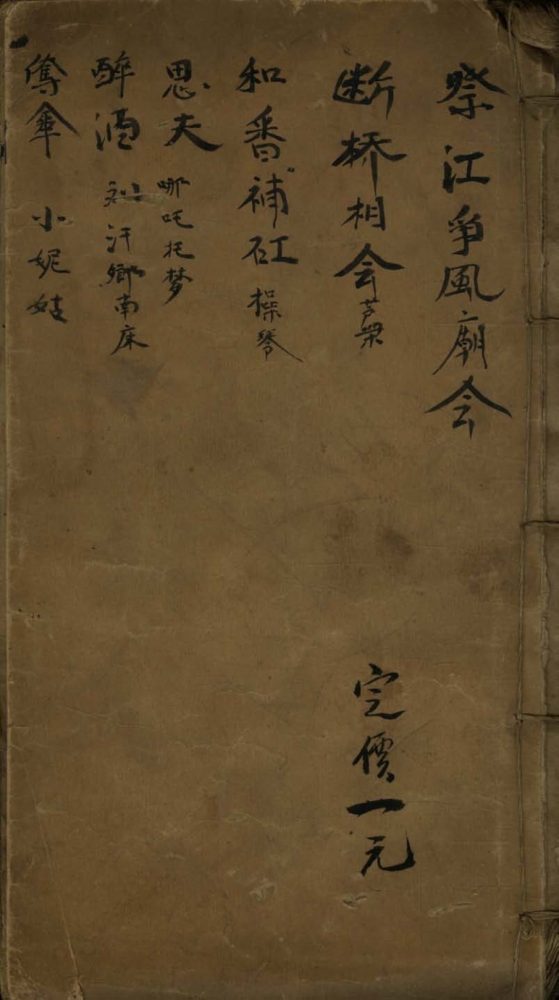 祭江爭風廟会
断桥相会 芦衆
和番補缸 操琴
思夫 哪吒托梦
醉酒 別汗鄉南床
奪傘 小妮姑
定價一元